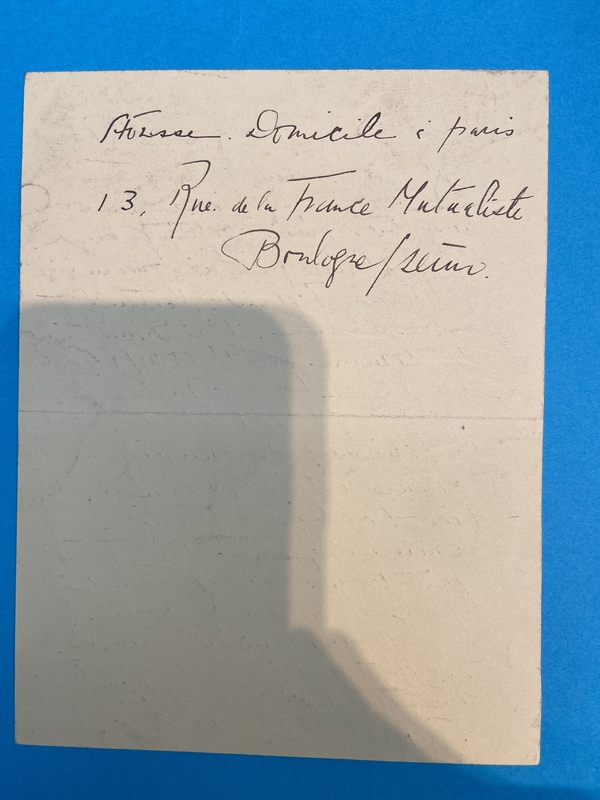 Adresse. Domicile à paris
13, Rue de la France Mutualiste
Boulogne/seine.